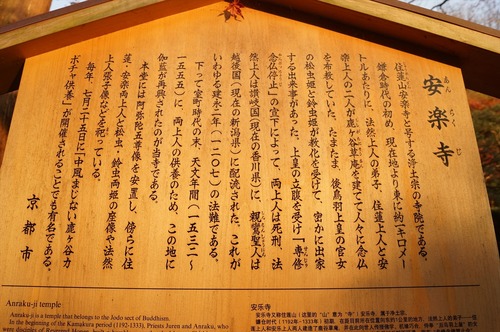 安楽寺
あん らく じ
住蓮山安楽寺と号する浄土宗の寺院である。
鎌倉時代の初め、現在地より東に約一キロメー
トルあたりに、法然上人の弟子、住蓮上人と安
楽上人の二人が鹿ヶ谷草庵を建てて人々に念仏
を布教していた。たまたま、後鳥羽上皇の官女
の松虫姫と鈴虫姫が教化を受けて、密かに出家
する出来事があった。上皇の立腹を受け「専修
念仏停止」の宣下によって、両上人は死刑、法
然上人は讃岐国(現在の香川県)に、親鸞聖人は
越後国(現在の新潟県)に配流された。これが
いわゆる建永二年(一二〇七)の法難である。
下って室町時代の末、天文年間(一五三二〜
一五五五)に、両上人の供養のため、この地に
伽藍が再興されたのが当寺である。
本堂には阿弥陀五尊像を安置し、傍らに住
蓮・安楽両上人と松虫・鈴虫両姫の座像や法然
上人張子像などを祀っている。
毎年、七月二十五日に「中風まじない鹿ヶ谷カ
ボチャ供養」が開催されることでも有名である。
京都市
Anraku-ji temple
Anraku-ji is a temple that belongs to the Jodo sect of Buddhism.
In the beginning of the Kamakura period (1192-1333), Priests Juren and Anraku, who
安乐寺
安乐寺又称住莲山(这里的"山"意为"寺")安乐寺,属于净土宗。